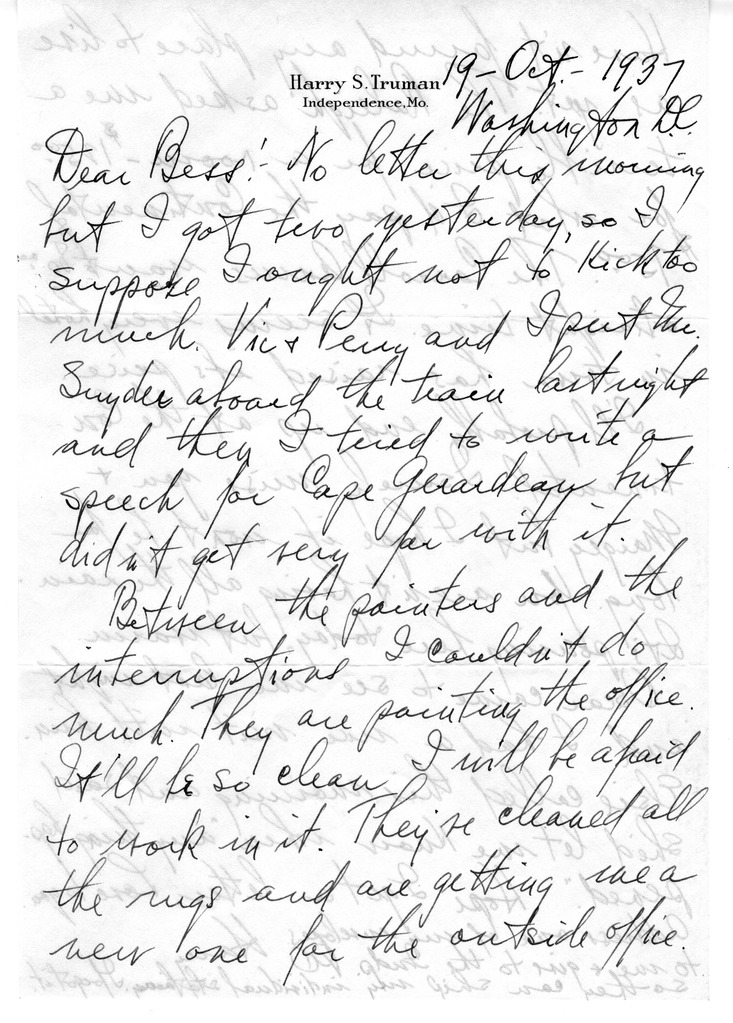 Harry S. Truman
Independence, Mo.
19-Oct.-1937
Washington D.C.
Dear Bess:- No letter this morning
but I got two yesterday, so I
suppose I ought not to Kick too
much. Vic & Perry and I put Mr.
Snyder aboard the train last night
and then I tried to write a
speech for Cape Gerardeau but
didn't get very far with it.
Between the painters and the
interruptions I couldn't do
much. They are painting the office.
It'll be so clean I will be afraid
to work in it. They've cleaned all
the rugs and are getting me a
new one for the outside office.